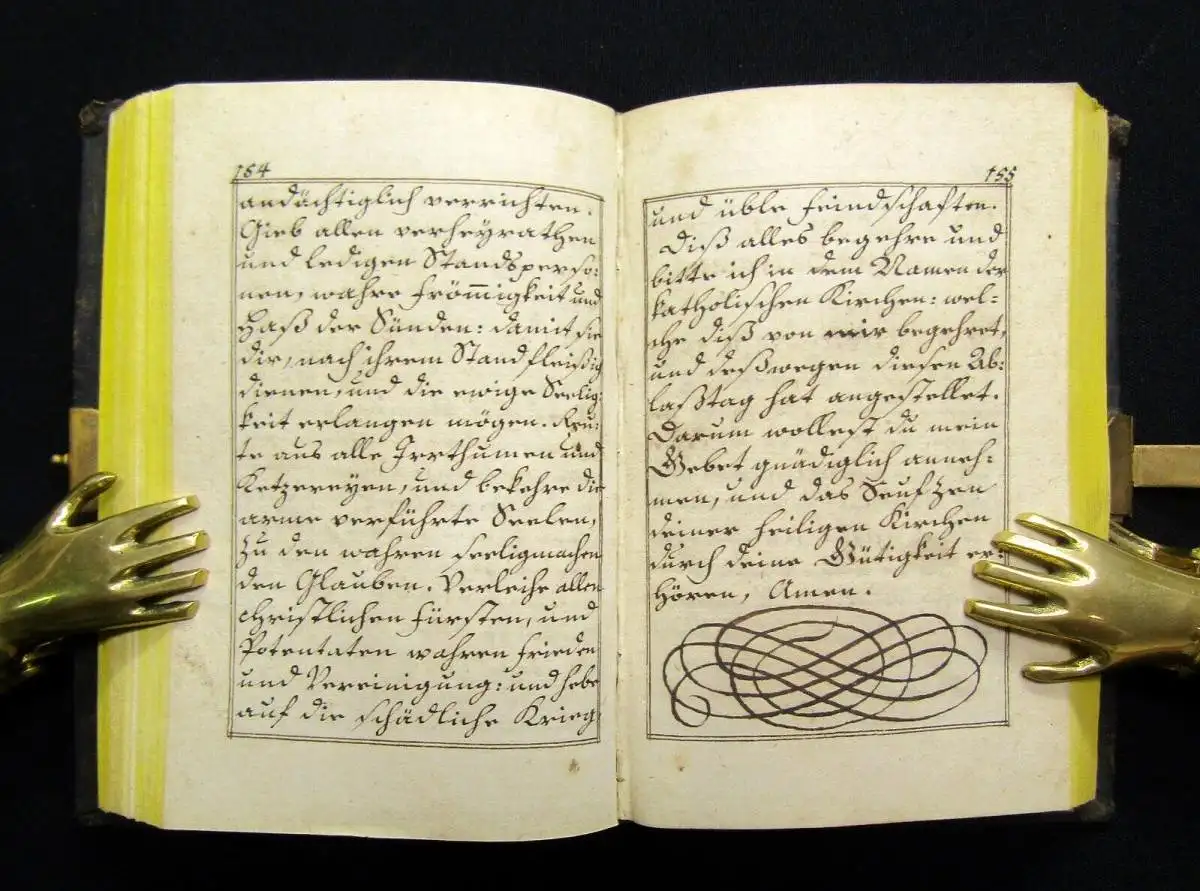 154
andächtiglich verrichten.
Gieb allen verheyrathen
und ledigen Standsperso:
nen, wahre Frömmigkeit und
Haß der Sünden: damit sie
dir, nach ihrem Stand fleißig
dienen, und die ewige Seelig:
keit erlangen mögen. Reu:
te aus alle Irrthumen und
Ketzereyen, und bekehre die
arme verführte Seelen,
zu den wahren seeligmachen
den Glauben. Verleihe allen
christlichen Fürsten, und
Potentaten wahren Frieden
und Vereinigung: und hebe
auf die schädliche Krieg
155
und üble Feindschaften.
Diß alles begehre und
bitte ich in dem Namen der
katholischen Kirchen: wel-
che diß von mir begehret,
und deßwegen diesen Ab:
laßtag hat angestellet.
Darum wollest du mein
Gebet gnädiglich anneh:
men, und das Seufzen
deiner heiligen Kirchen
durch deine Gütigkeit er:
hören, Amen.